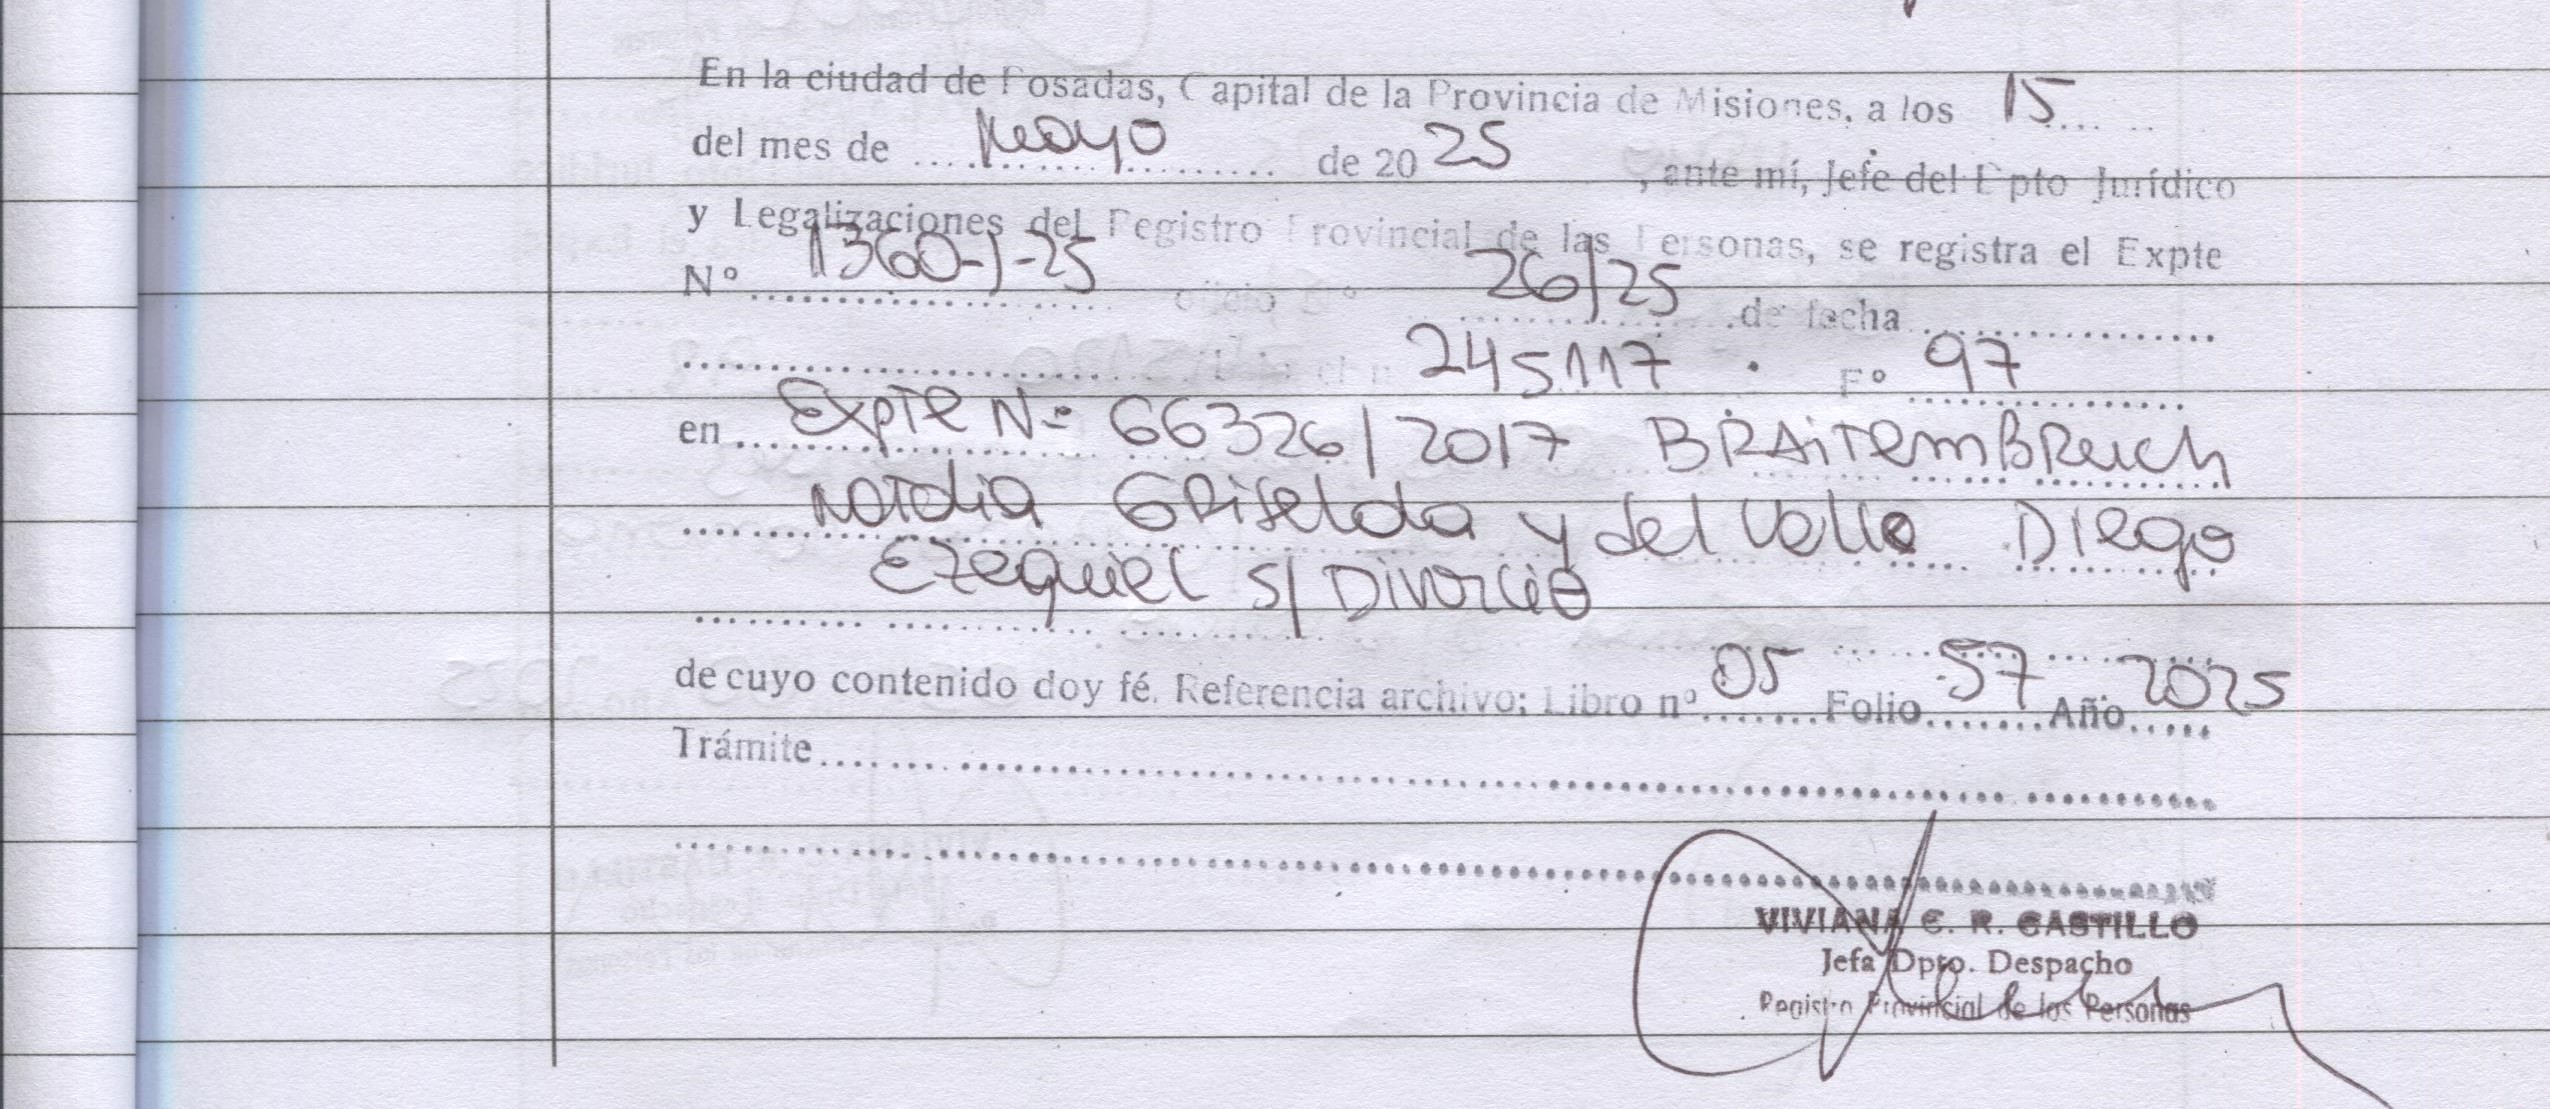 En la ciudad de Posadas, Capital de la Provincia de Misiones, a los 15
del mes de Mayo de 20 25, ante mí, Jefe del Dpto Jurídico
y Legalizaciones del Registro Provincial de las Personas, se registra el Expte
Nº 1360-J-25 oficio Nº 26/25 de fecha
245117 . Fº 97
en Expte Nº 66326/2017 BRAiTemBReich
Natalia GRiselda y del Valle Diego
Ezequiel S/ Divorcio
de cuyo contenido doy fé. Referencia archivo; Libro nº 05 Folio 57 Año 2025
Trámite
VIVIANA C. R. CASTILLO
Jefa Dpto. Despacho
Registro Provincial de las Personas